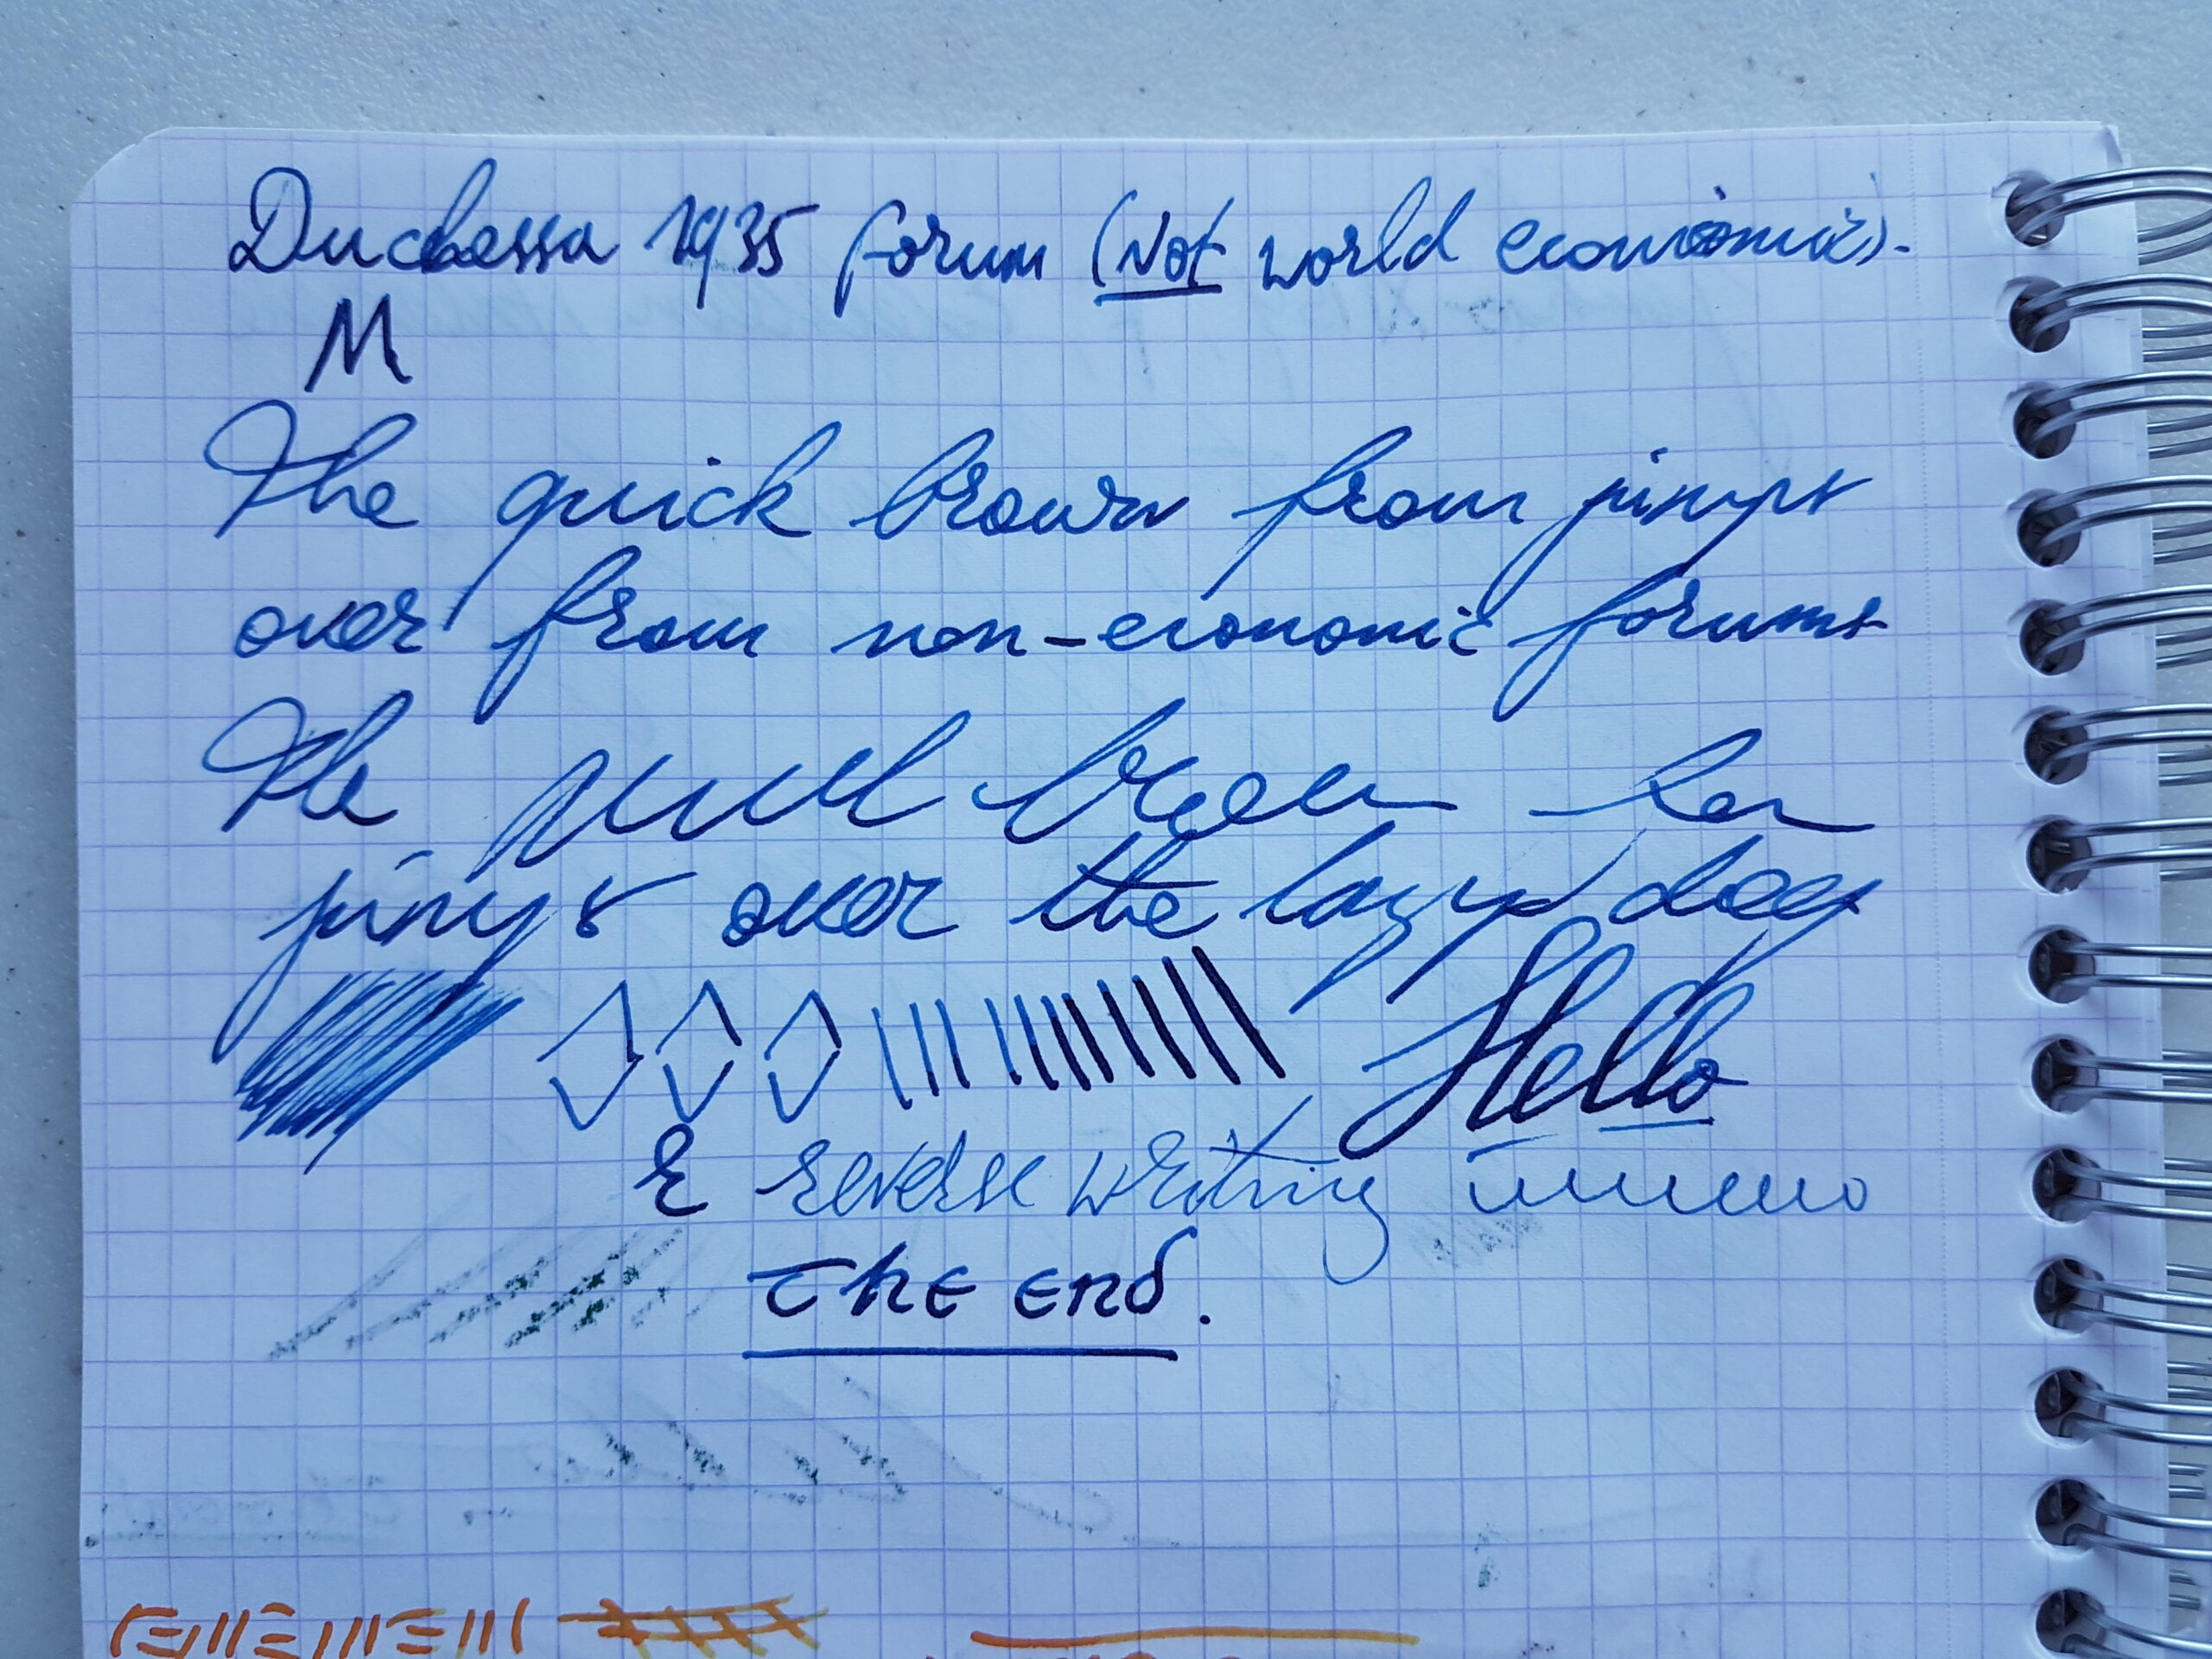 Duchessa 1935 forum (Not world economic).
M
The quick brown from jumps
over from non-economic forums
The quick brown fox
jumps over the lazy dog
Hello
& reverse writing
The end.